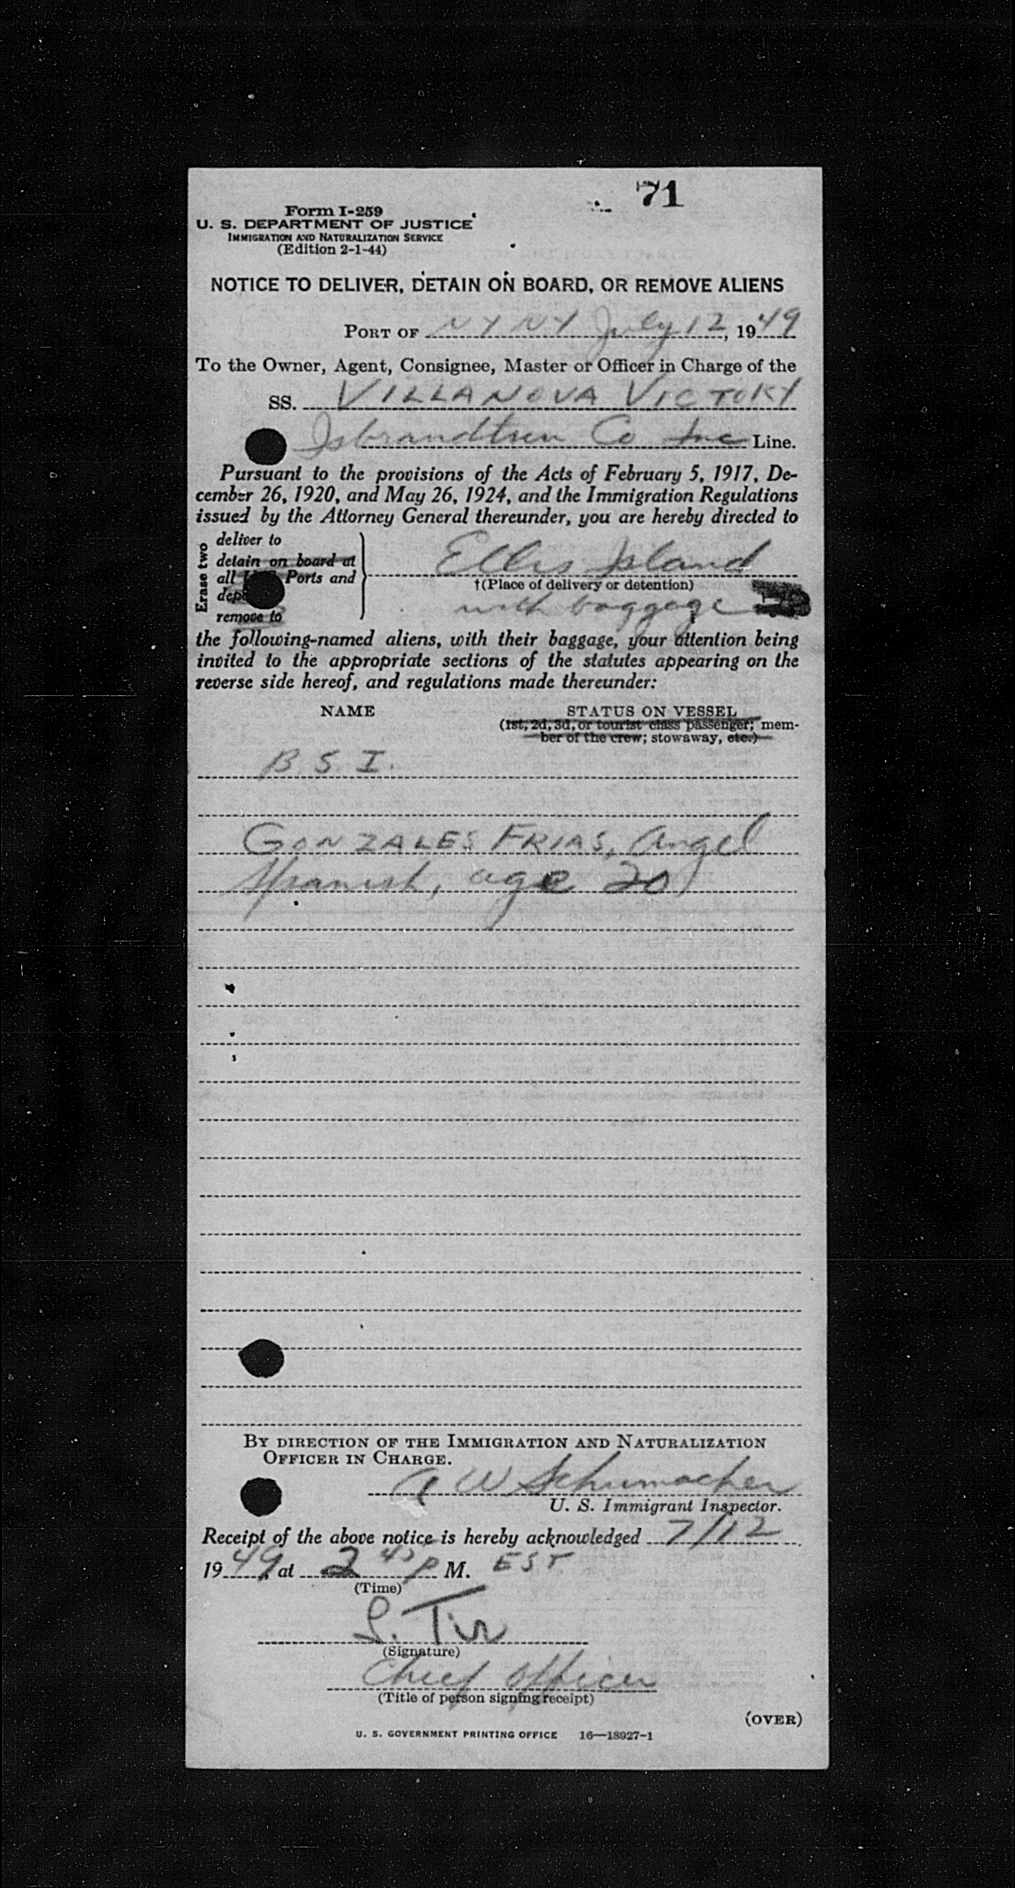 71
Form I-259
U. S. DEPARTMENT OF JUSTICE
IMMIGRATION AND NATURALIZATION SERVICE
(Edition 2-1-44)
NOTICE TO DELIVER, DETAIN ON BOARD, OR REMOVE ALIENS
PORT OF N Y N Y July 12, 1949
To the Owner, Agent, Consignee, Master or Officer in Charge of the
SS. VILLANOVA VICTORY
Isbrandtsen Co Inc Line.
Pursuant to the provisions of the Acts of February 5, 1917, De-
cember 26, 1920, and May 26, 1924, and the Immigration Regulations
issued by the Attorney General thereunder, you are hereby directed to
Erase two
deliver to
detain on board at
all Ports and
remove to
Ellis Island
†(Place of delivery or detention)
with baggage
the following-named aliens, with their baggage, your attention being
invited to the appropriate sections of the statutes appearing on the
reverse side hereof, and regulations made thereunder:
NAME STATUS ON VESSEL
(1st, 2d, 3d, or tourist class passenger; mem-
ber of the crew; stowaway, etc.)
B. S. I.
GONZALES FRIAS, Angel
Spanish, age 20
BY DIRECTION OF THE IMMIGRATION AND NATURALIZATION
OFFICER IN CHARGE.
A W Schumacher
U. S. Immigrant Inspector.
Receipt of the above notice is hereby acknowledged 7/12
1949 at 2 45 P M. EST
(Time)
(Signature)
Chief Officer
(Title of person signing receipt)
(OVER)
U. S. GOVERNMENT PRINTING OFFICE 16—18927-1